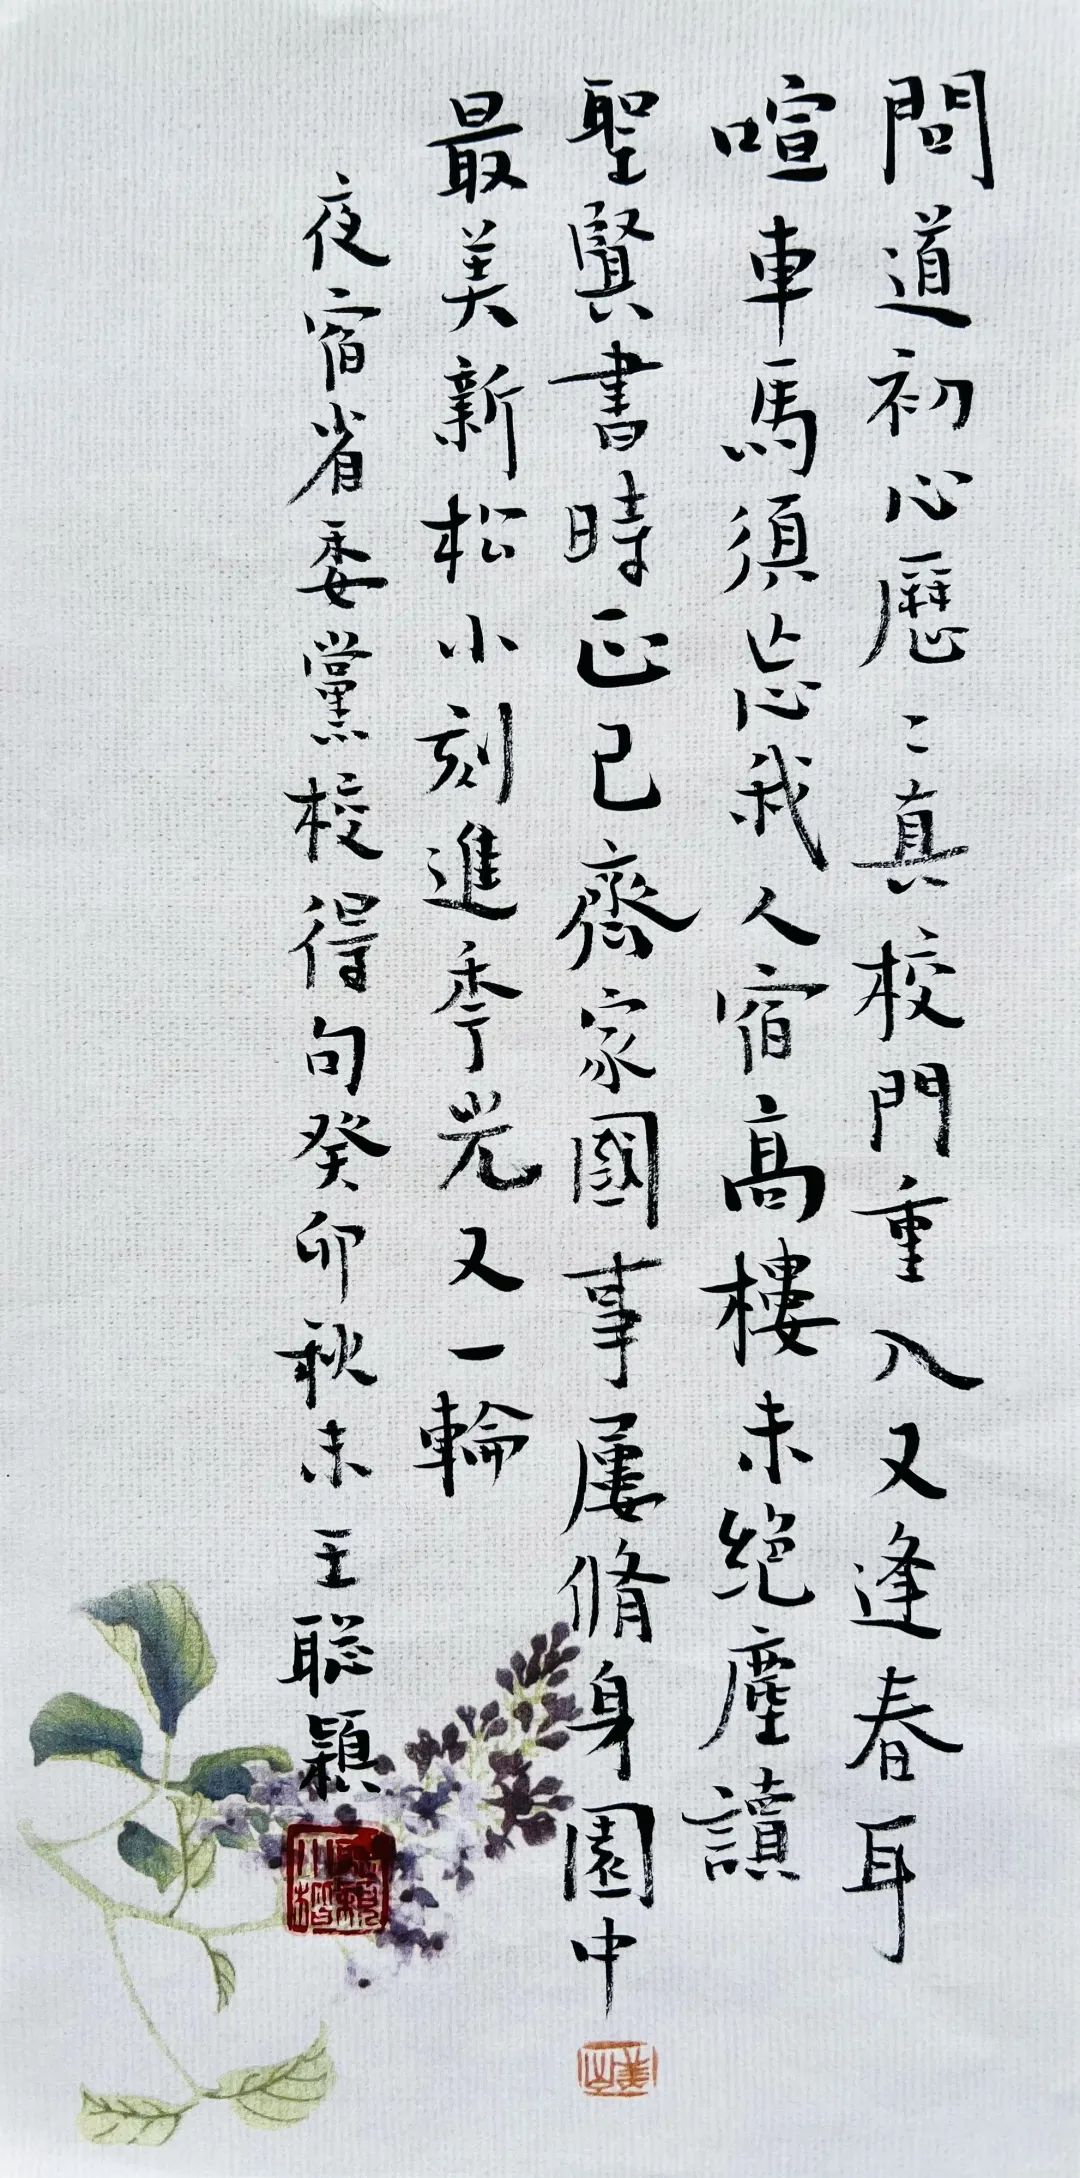 問道初心歷〻真校門重入又逢春耳
喧車馬須忘我人宿高樓未絕塵讀
聖賢書時正己齊家國事屢脩身園中
最美新松小刻進秊光又一輪
夜宿省委黨校得句癸卯秋末王聰穎